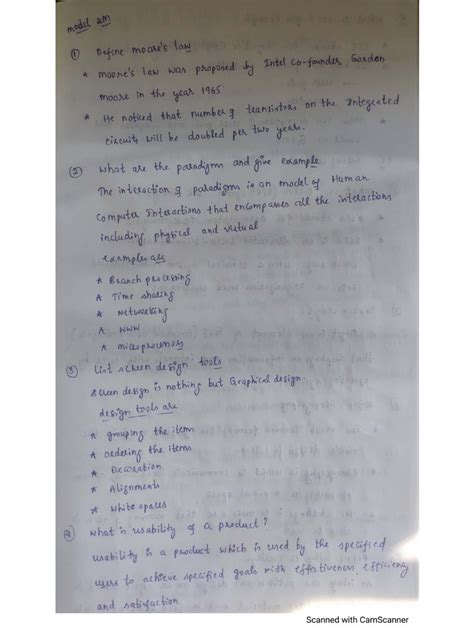 model 2M
① Define moore's law
* moore's law was proposed by Intel co-founder Gordon
moore in the year 1965
* He noticed that number of transistors on the Integrated
circuits will be doubled per two years.
② what are the paradigms and give example
The interaction of paradigms is an model of Human
Computer Interactions that encompasses all the interactions
including physical and virtual
examples are
* Branch processing
* Time sharing
* Networking
* WWW
* microprocessors
③ List screen design tools
screen design is nothing but Graphical design
design tools are
* grouping the items
* ordering the items
* Decoration
* Alignments
* white spaces
④ what is usability of a product?
usability is a product which is used by the specified
users to achieve specified goals with effectiveness, efficiency
and satisfaction
Scanned with CamScanner